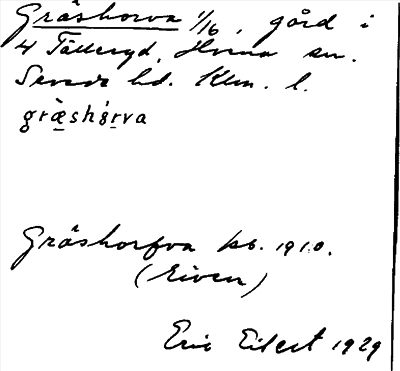 Gräshorva 1/16, gård i
4 Fälleryd, Hvena sn.
Sevede hd. Klm. l.
græshǫrva
Gräshorfva kb. 1910.
(Eiven)
Eric Eilert 1929